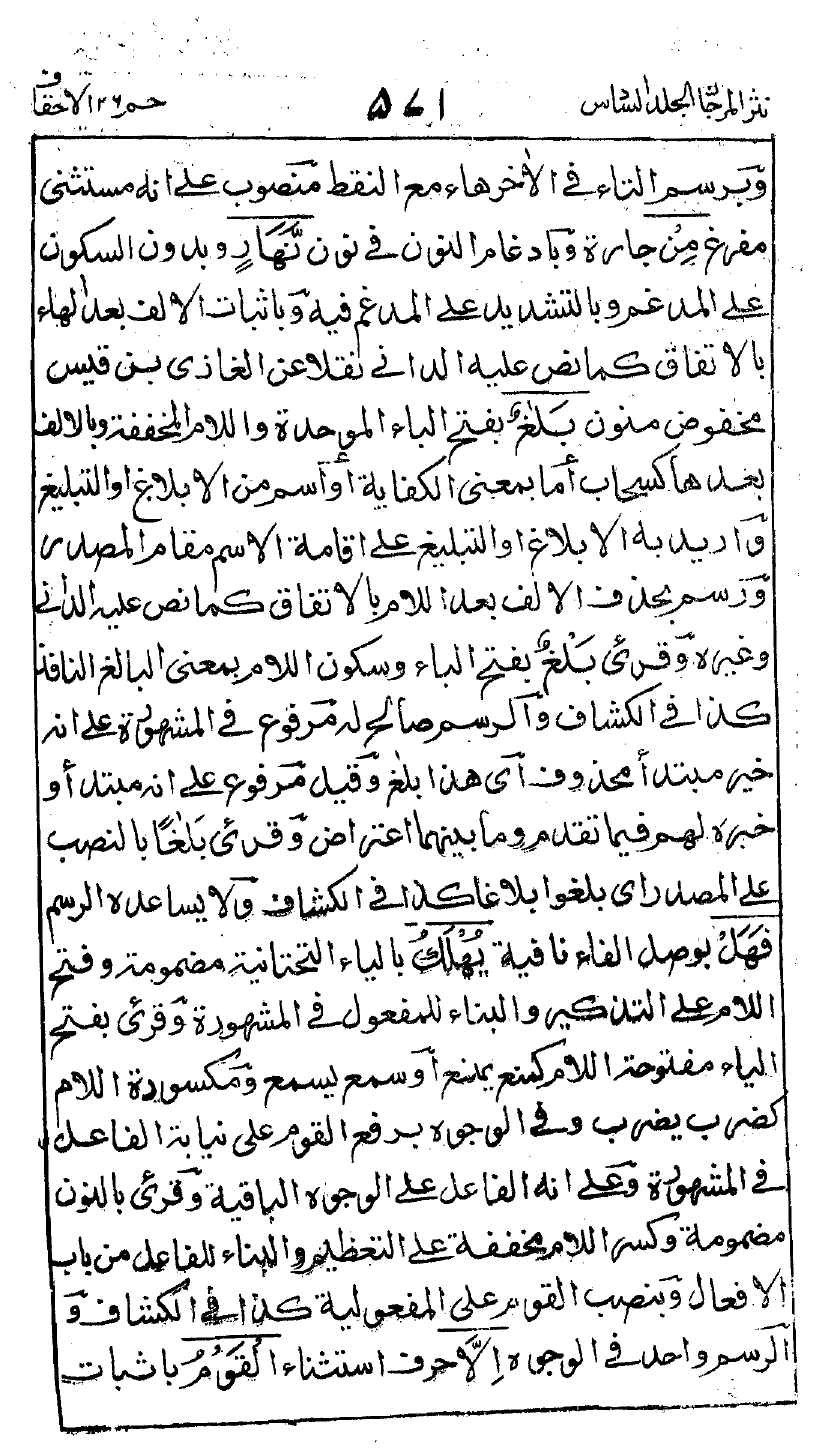 نثر المرجان المجلد السادس ۵۷۱ حم ٢٦ الاحقاف
وَبرسم التاء فى الاٰخر هاء مع النقط منصوب على انه مستثنى
مفرغ مِنْ جارة وَبادغام النون فى نون نَّهَارٍ وبدون السكون
على المدغم وبالتشديد على المدغم فيه وَباثبات الالف بعد الهاء
بالاتفاق كما نص عليه الدانى نقلا عن الغازى بن قيس
مخفوض منون بَلٰغٌ بفتح الباء الموحدة واللام المخففة وبالالف
بعدها كسحاب أما بمعنى الكفاية أو اسم من الابلاغ او التبليغ
وَاريد به الابلاغ او التبليغ على اقامة الاسم مقام المصدر
وَرسم بحذف الالف بعد اللام بالاتفاق كما نص عليه الدانى
وغيره وَقرئ بَلْغٌ بفتح الباء وسكون اللام بمعنى البالغ النافذ
كذا فى الكشاف وَالرسم صالح له مرفوع فى المشهورة على انه
خبر مبتدأ محذوف أى هذا بلٰغ وَقيل مرفوع على انه مبتدأ و
خبره لهم فيما تقدم وما بينهما اعتراض وَقرئ بَلٰغًا بالنصب
على المصدر اى بلغوا بلاغا كذا فى الكشاف وَلا يساعده الرسم
فَهَلْ بوصل الفاء نافية يُهْلَكُ بالياء التحتانية مضمومة وفتح
اللام على التذكير والبناء للمفعول فى المشهورة وَقرئ بفتح
الياء مفتوحة اللام كمنع يمنع أو سمع يسمع وَمكسورة اللام
كضرب يضرب وفى الوجوه برفع القوم على نيابة الفاعل
فى المشهورة وَعلى انه الفاعل على الوجوه الباقية وَقرئ بالنون
مضمومة وكسر اللام مخففة على التعظيم والبناء للفاعل من باب
الافعال وَبنصب القوم على المفعولية كذا فى الكشاف وَ
الرسم واحد فى الوجوه اِلَّا حرف استثناء الْقَوْمُ باثبات